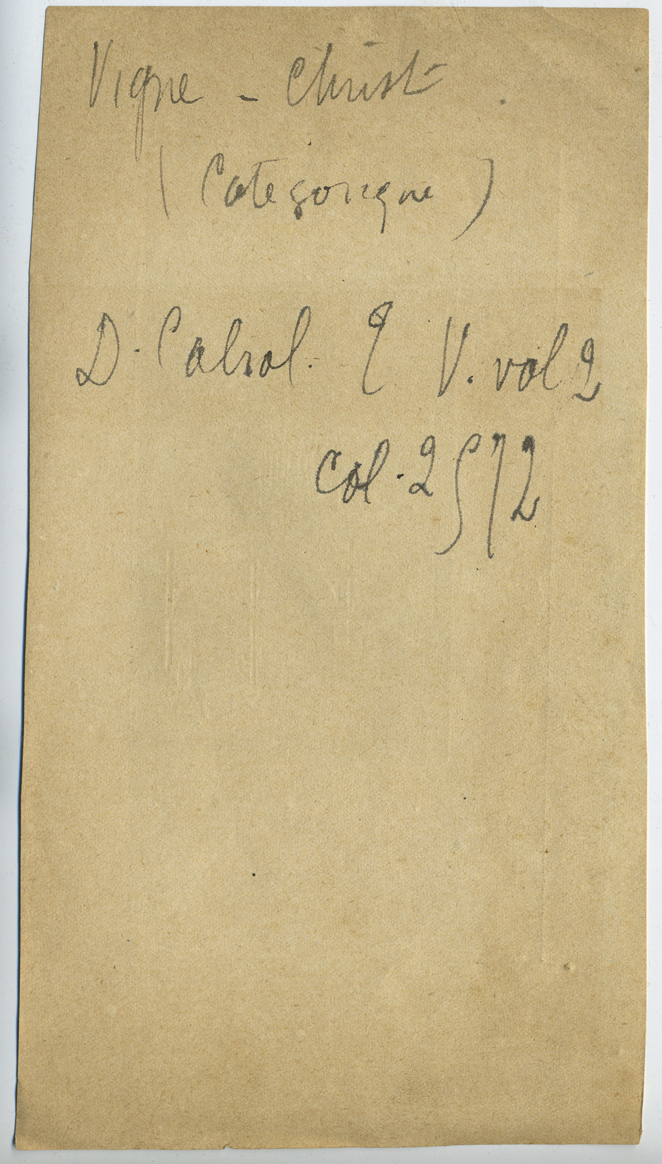 Vigne - Christ
(Categorique)
D. Cabrol. T V. vol 2
col. 2572